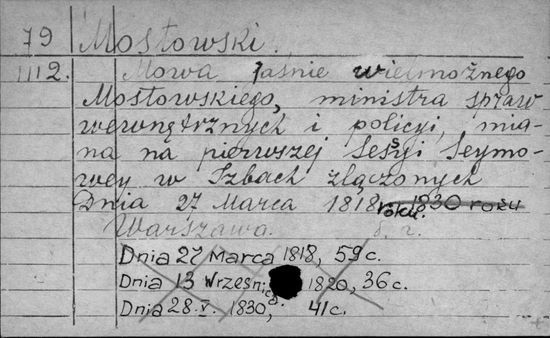 79 Mostowski.
1112. Mowa Jaśnie wielmożnego
Mostowskiego, ministra spraw
wewnętrznych i policyi, mia-
na na pierwszej Sessyi Seymo-
wey w Izbach złączonych
Dnia 27 Marca 1818 roku. 1830 roku
Warszawa. b. r.
Dnia 27 Marca 1818, 59 c.
Dnia 13 Wrześnica 1820, 36 c.
Dnia 28. V. 1830, 41 c.